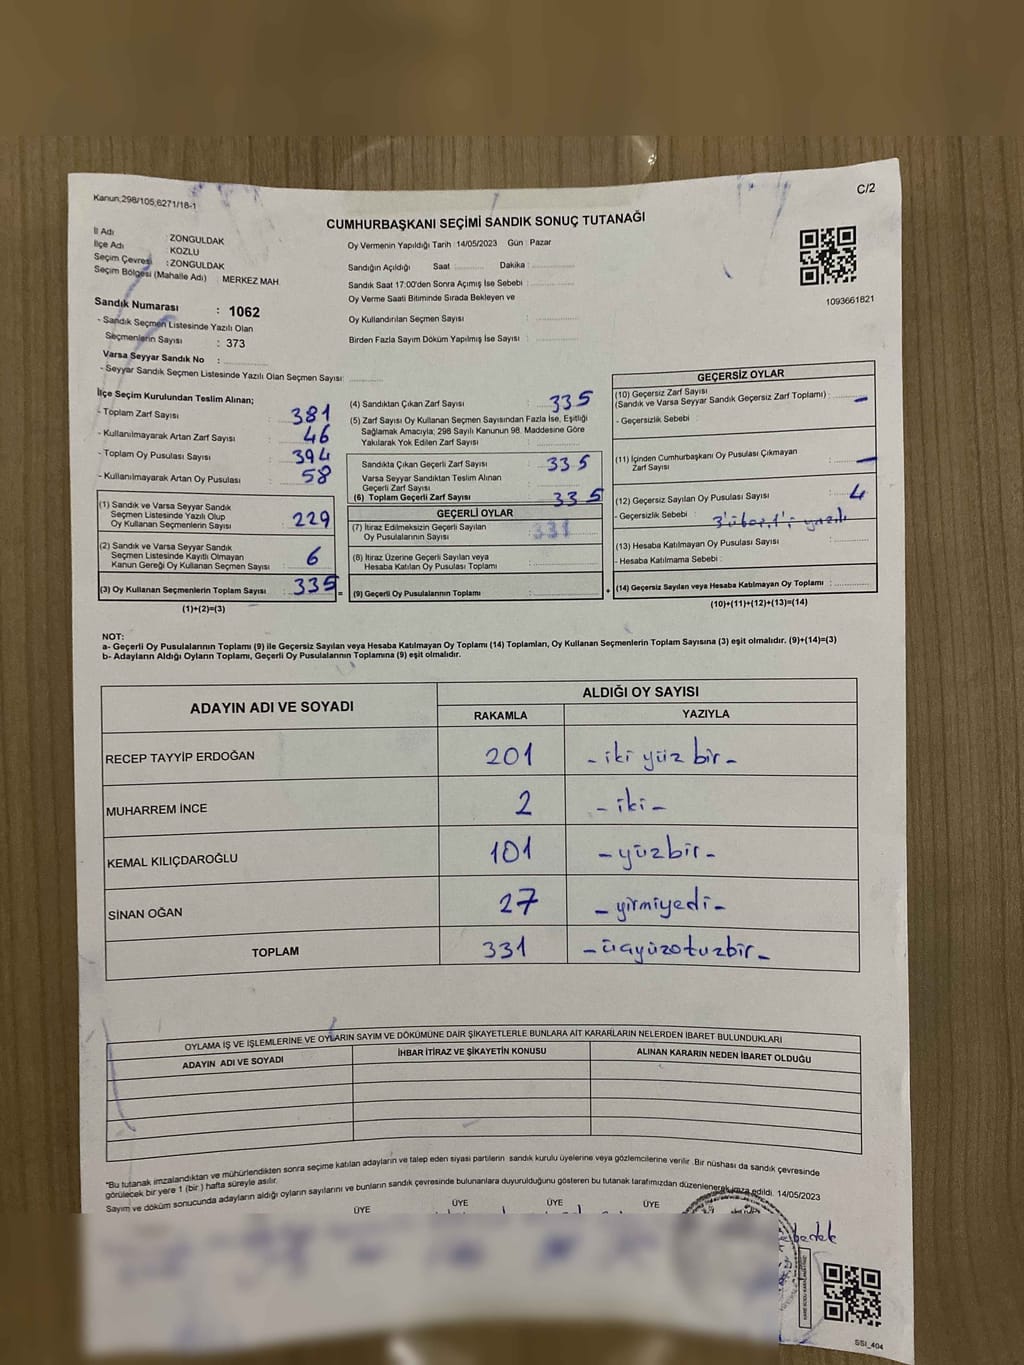 Kanun;298/105,6271/18-1
C/2
CUMHURBAŞKANI SEÇİMİ SANDIK SONUÇ TUTANAĞI
İl Adı : ZONGULDAK
İlçe Adı : KOZLU
Seçim Çevresi : ZONGULDAK
Seçim Bölgesi (Mahalle Adı) : MERKEZ MAH
Sandık Numarası : 1062
- Sandık Seçmen Listesinde Yazılı Olan
Seçmenlerin Sayısı : 373
Varsa Seyyar Sandık No :
- Seyyar Sandık Seçmen Listesinde Yazılı Olan Seçmen Sayısı:
Oy Vermenin Yapıldığı Tarih : 14/05/2023 Gün : Pazar
Sandığın Açıldığı Saat Dakika :
Sandık Saat 17:00'den Sonra Açımış İse Sebebi :
Oy Verme Saati Bitiminde Sırada Bekleyen ve
Oy Kullandırılan Seçmen Sayısı :
Birden Fazla Sayım Döküm Yapılmış İse Sayısı :
1093661821
İlçe Seçim Kurulundan Teslim Alınan;
- Toplam Zarf Sayısı : 381
- Kullanılmayarak Artan Zarf Sayısı : 46
- Toplam Oy Pusulası Sayısı : 394
- Kullanılmayarak Artan Oy Pusulası : 58
(1) Sandık ve Varsa Seyyar Sandık
Seçmen Listesinde Yazılı Olup
Oy Kullanan Seçmenlerin Sayısı : 229
(2) Sandık ve Varsa Seyyar Sandık
Seçmen Listesinde Kayıtlı Olmayan
Kanun Gereği Oy Kullanan Seçmen Sayısı : 6
(3) Oy Kullanan Seçmenlerin Toplam Sayısı : 335 =
(1)+(2)=(3)
(4) Sandıktan Çıkan Zarf Sayısı : 335
(5) Zarf Sayısı Oy Kullanan Seçmen Sayısından Fazla İse, Eşitliği
Sağlamak Amacıyla; 298 Sayılı Kanunun 98. Maddesine Göre
Yakılarak Yok Edilen Zarf Sayısı :
Sandıkta Çıkan Geçerli Zarf Sayısı : 335
Varsa Seyyar Sandıktan Teslim Alınan
Geçerli Zarf Sayısı :
(6) Toplam Geçerli Zarf Sayısı : 335
GEÇERLİ OYLAR
(7) İtiraz Edilmeksizin Geçerli Sayılan
Oy Pusulalarının Sayısı : 331
(8) İtiraz Üzerine Geçerli Sayılan veya
Hesaba Katılan Oy Pusulası Toplamı :
(9) Geçerli Oy Pusulalarının Toplamı : +
GEÇERSİZ OYLAR
(10) Geçersiz Zarf Sayısı
(Sandık ve Varsa Seyyar Sandık Geçersiz Zarf Toplamı) : –
- Geçersizlik Sebebi :
(11) İçinden Cumhurbaşkanı Oy Pusulası Çıkmayan
Zarf Sayısı : –
(12) Geçersiz Sayılan Oy Pusulası Sayısı : 4
- Geçersizlik Sebebi : yazılı
(13) Hesaba Katılmayan Oy Pusulası Sayısı :
- Hesaba Katılmama Sebebi :
(14) Geçersiz Sayılan veya Hesaba Katılmayan Oy Toplamı :
(10)+(11)+(12)+(13)=(14)
NOT:
a- Geçerli Oy Pusulalarının Toplamı (9) ile Geçersiz Sayılan veya Hesaba Katılmayan Oy Toplamı (14) Toplamları, Oy Kullanan Seçmenlerin Toplam Sayısına (3) eşit olmalıdır. (9)+(14)=(3)
b- Adayların Aldığı Oyların Toplamı, Geçerli Oy Pusulalarının Toplamına (9) eşit olmalıdır.
ADAYIN ADI VE SOYADI ALDIĞI OY SAYISI
RAKAMLA YAZIYLA
RECEP TAYYİP ERDOĞAN 201 - iki yüz bir -
MUHARREM İNCE 2 - iki -
KEMAL KILIÇDAROĞLU 101 - yüzbir -
SİNAN OĞAN 27 - yirmiyedi -
TOPLAM 331 - üçyüzotuzbir -
OYLAMA İŞ VE İŞLEMLERİNE VE OYLARIN SAYIM VE DÖKÜMÜNE DAİR ŞİKAYETLERLE BUNLARA AİT KARARLARIN NELERDEN İBARET BULUNDUKLARI
ADAYIN ADI VE SOYADI İHBAR İTİRAZ VE ŞİKAYETİN KONUSU ALINAN KARARIN NEDEN İBARET OLDUĞU
"Bu tutanak imzalandıktan ve mühürlendikten sonra seçime katılan adayların ve talep eden siyasi partilerin sandık kurulu üyelerine veya gözlemcilerine verilir .Bir nüshası da sandık çevresinde
görülecek bir yere 1 (bir ) hafta süreyle asılır.
Sayım ve döküm sonucunda adayların aldığı oyların sayılarını ve bunların sandık çevresinde bulunanlara duyurulduğunu gösteren bu tutanak tarafımızdan düzenlenerek imza edildi. 14/05/2023
ÜYE ÜYE ÜYE ÜYE
SSI_404